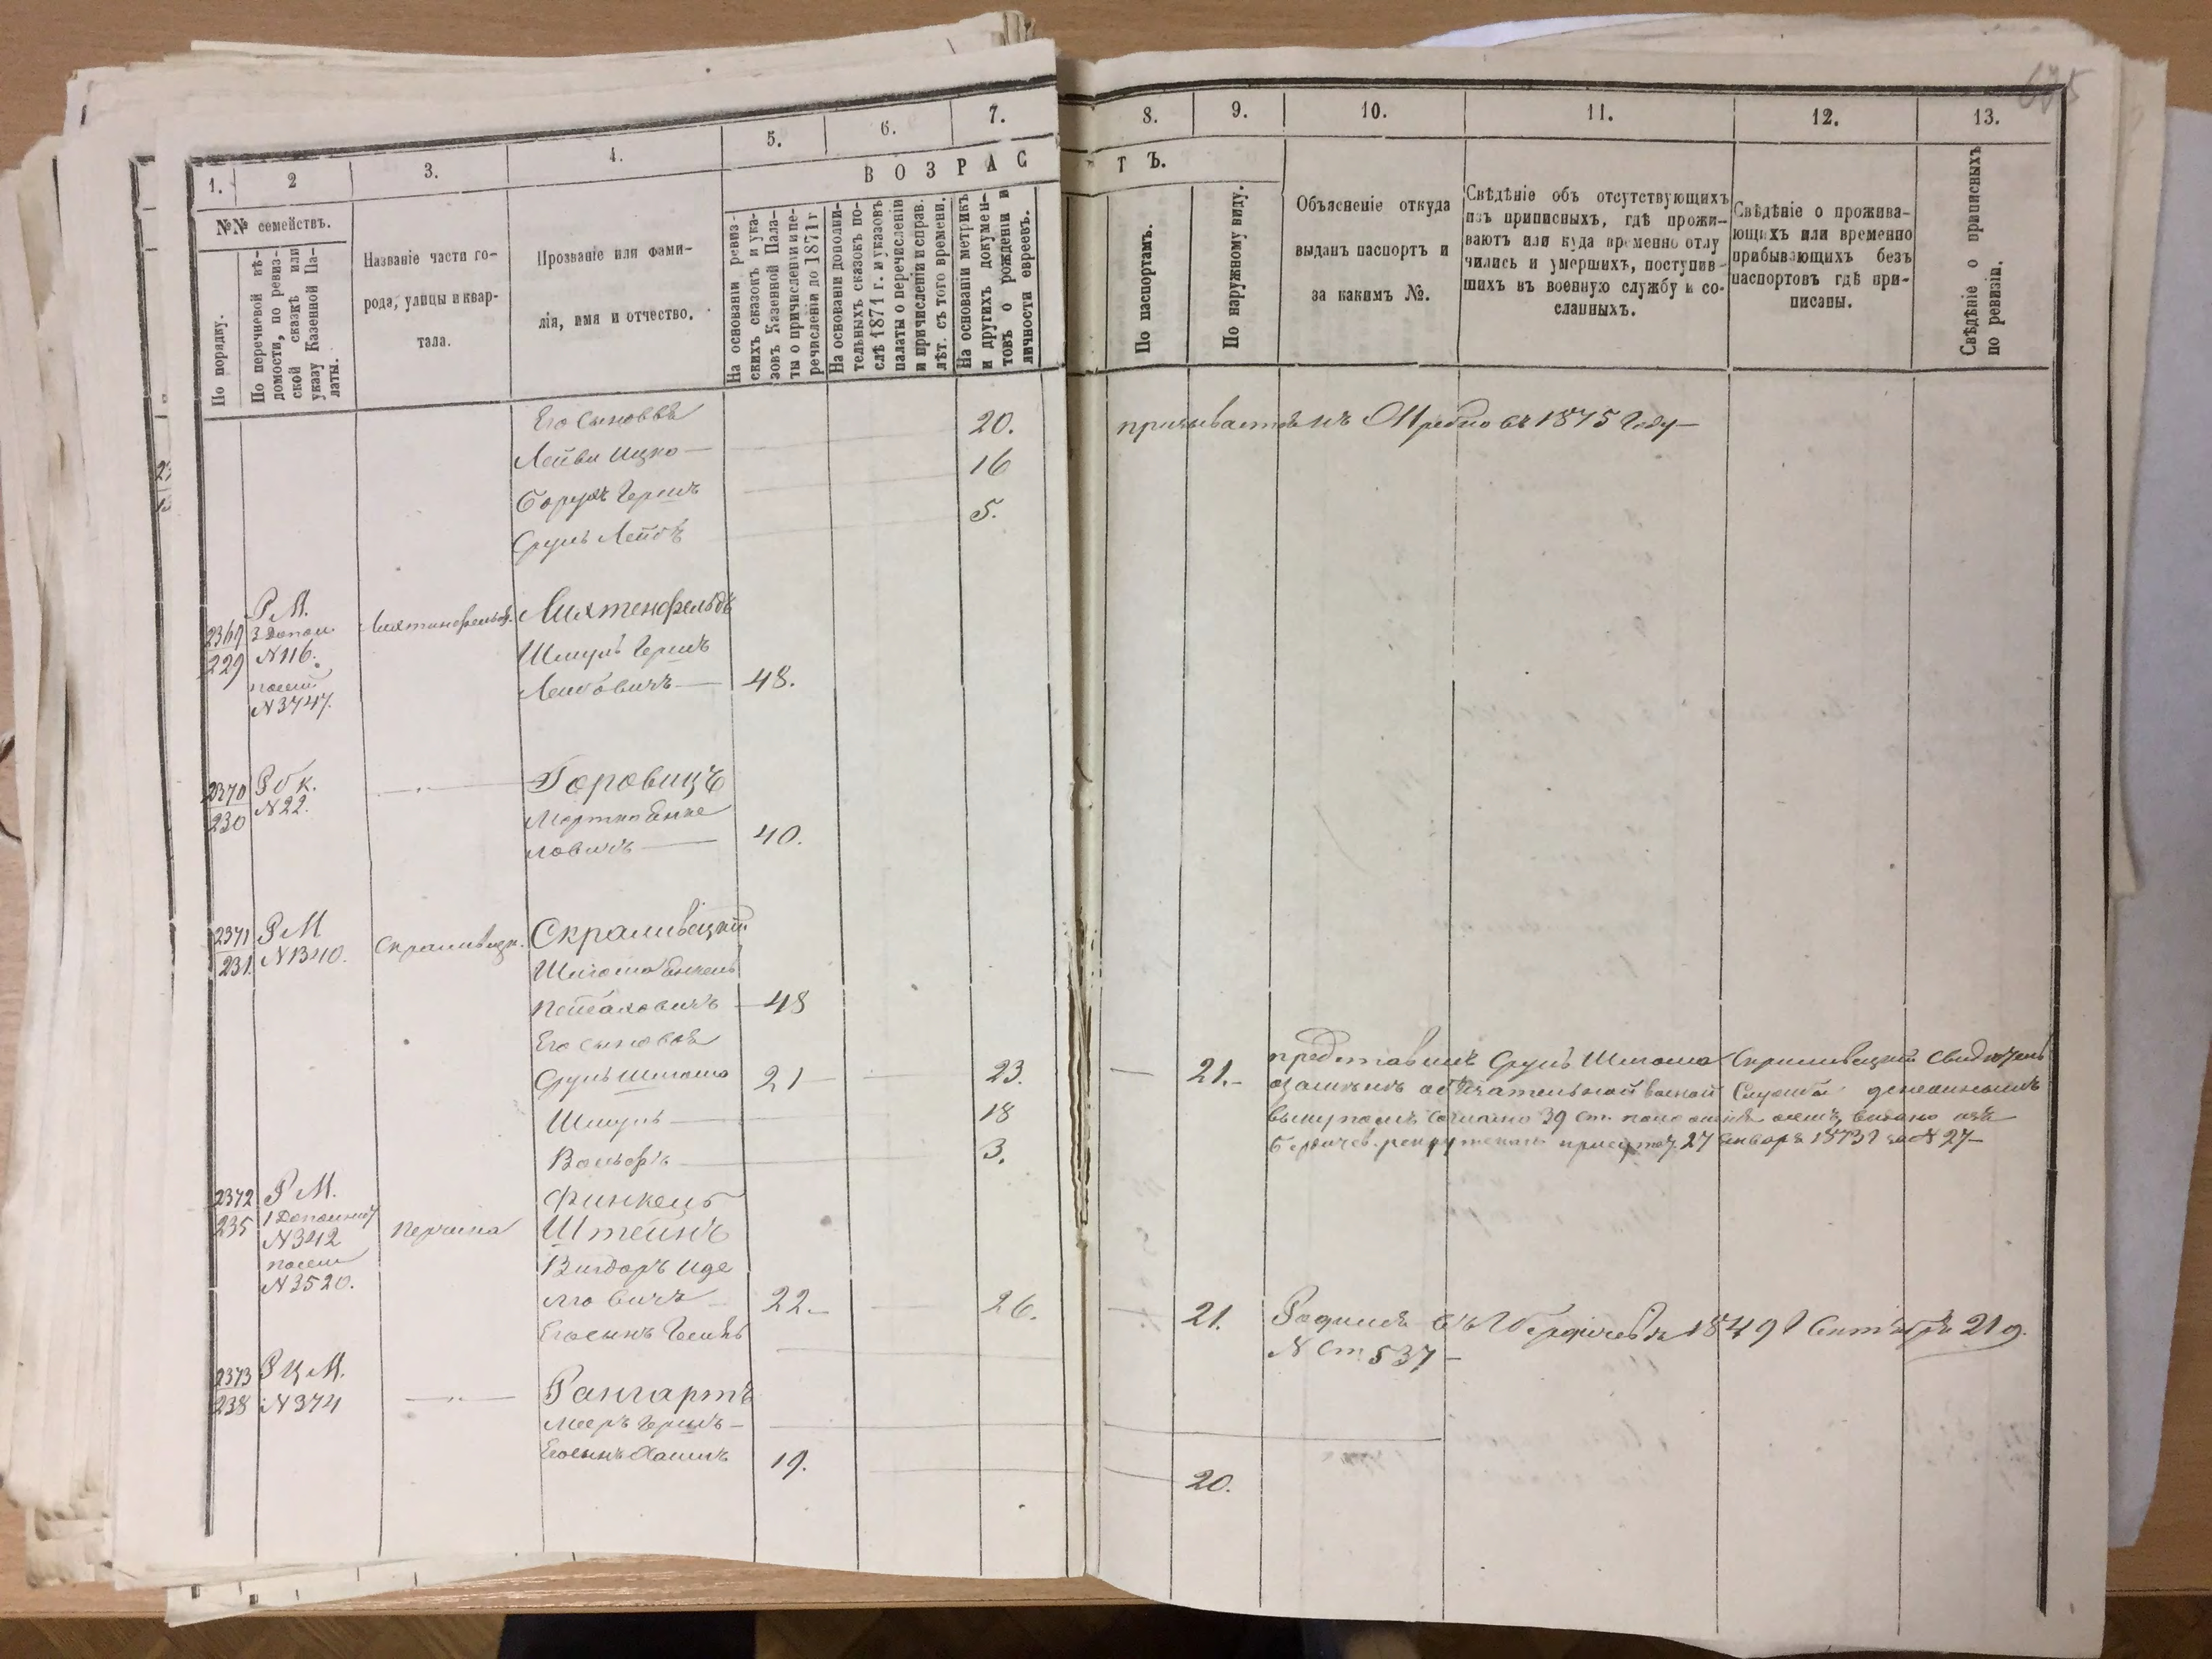 675
1. 2 3. 4. 5. 6. 7. 8. 9. 10. 11. 12. 13.
ВОЗРАСТЪ.
№№ семействъ.
По порядку.
По перечневой вѣ-
домости, по ревиз-
ской сказкѣ или
указу Казенной Па-
латы.
Названіе части го-
рода, улицы и квар-
тала.
Прозваніе или фами-
лія, имя и отчество.
На основаніи ревиз-
скихъ сказокъ и ука-
зовъ Казенной Пала-
ты о причисленіи и пе-
речисленіи до 1871 г
На основаніи дополни-
тельныхъ сказокъ по-
слѣ 1871 г. и указовъ
палаты о перечисленіи
и причисленіи и справ.
лѣт. съ того времени.
На основаніи метрикъ
и другихъ докумен-
товъ о рожденіи и
личности евреевъ.
По паспортамъ.
По наружному виду.
Объясненіе откуда
выданъ паспортъ и
за какимъ №.
Свѣдѣніе объ отсутствующихъ
изъ приписныхъ, гдѣ прожи-
ваютъ или куда временно отлу
чились и умершихъ, поступив-
шихъ въ военную службу и со-
сланныхъ.
Свѣдѣніе о прожива-
ющихъ или временно
прибывающихъ безъ
паспортовъ гдѣ при-
писаны.
Свѣдѣніе о приписныхъ
по ревизіи.
Его сыновья 20. призывается къ жребію въ 1875 году
Лейви Ицко 16
Борухъ Гершъ 5.
Сруль Лейбъ
2369
229
Р М.
3 Допол.
N 116.
посем
N 3747.
Лихтенфельд. Лихтенфельдъ
Шмуль Гершъ
Лейбовичъ 48.
2370
230
Р б к.
N 22.
Горовицъ
Мортко Енке
ловичъ 40.
2371
231.
Р М
N 1340.
Скрашивецк. Скрашивецкій
Шлиома Енкель
Пейсаховичъ 48
Его сыновья
Сруль Шлиома 21 23. 21.
Шмуль 18
Вольфъ 3.
представилъ Сруль Шлиома Скрашивецкій свидѣтель
27 Января 1873 г за N 27
2372
235
Р М.
1 Дополнит
N 342
посем
N 3520.
Финкель
Штейнъ
Вигдоръ Иде
ловичъ 22. 26. 21.
Родился въ г Бердичевѣ 1849 г Сентября 21 д.
N Ст. 537
2373
238
Р Ц М.
N 374
Рангартъ
Мееръ Гершъ
Его сынъ Хаимъ 19. 20.